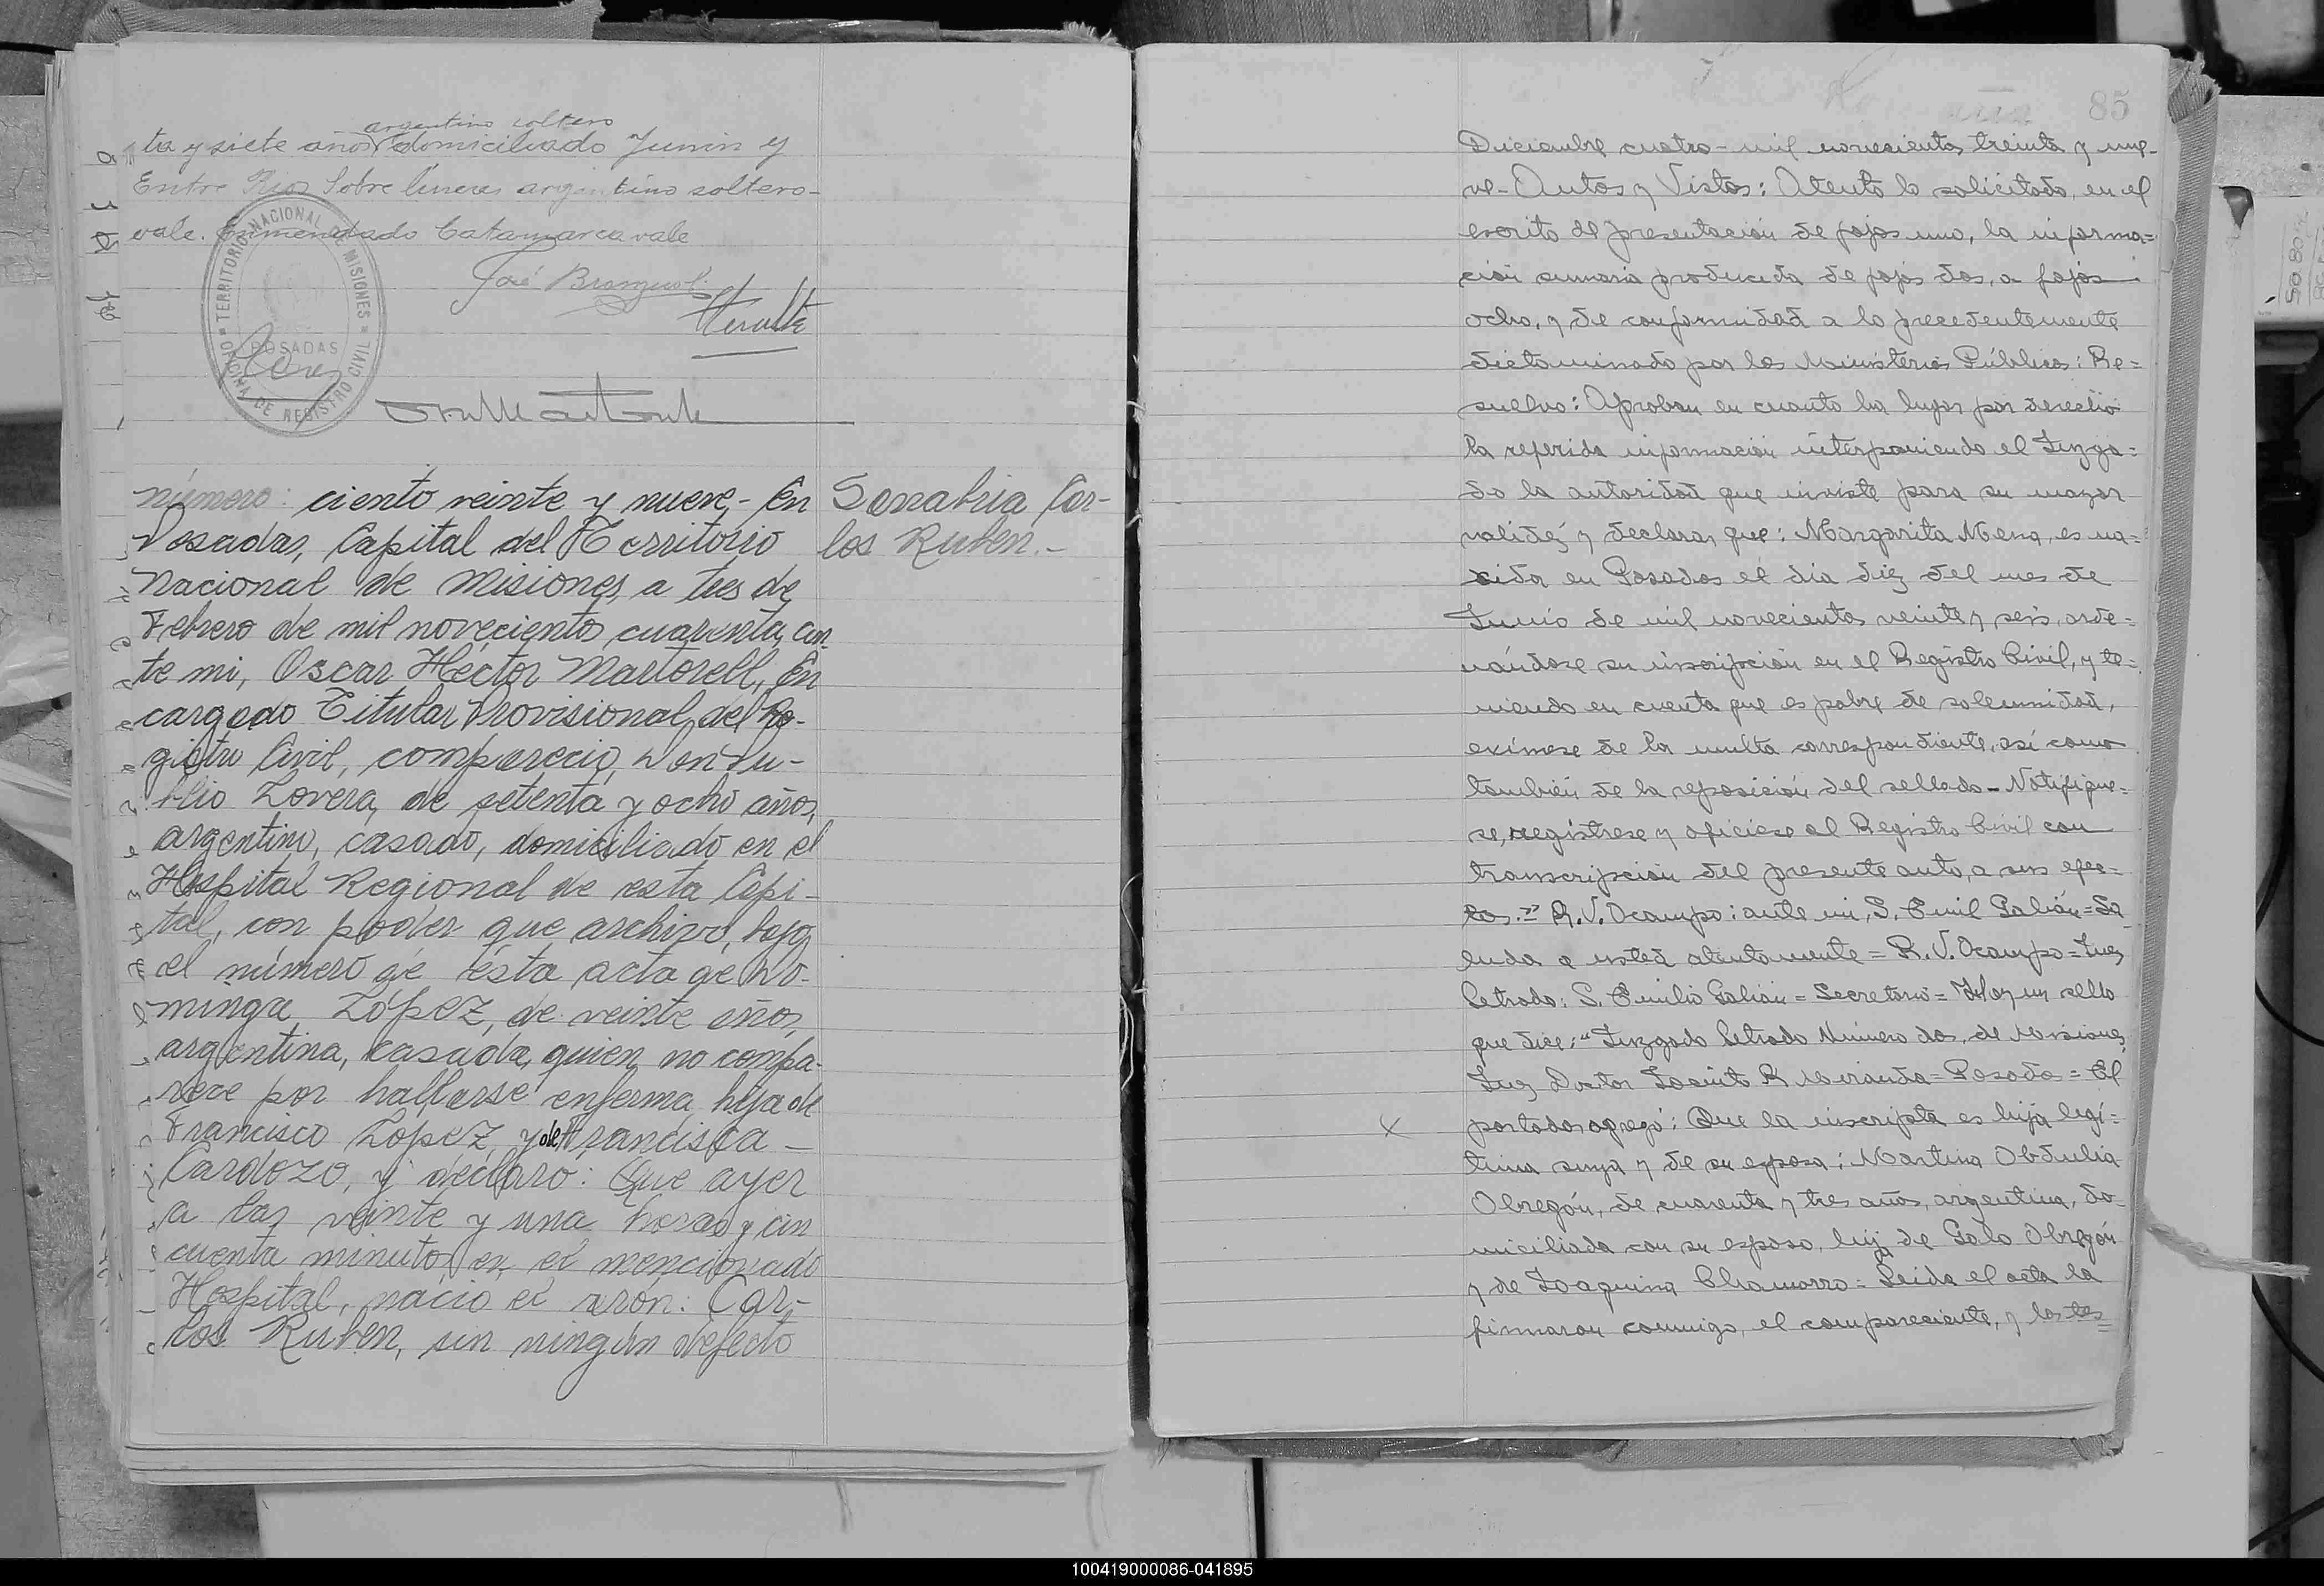 argentino soltero
ta y siete años domiciliado Junin y
Entre Rios Sobre lineas argentino soltero-
vale. Enmendado Catamarca vale
TERRITORIO NACIONAL DE MISIONES
POSADAS
OFICINA DE REGISTRO CIVIL
José
número: ciento veinte y nueve,- En
Posadas, Capital del Territorio
Nacional de Misiones, a tres de
Febrero de mil novecientos cuarenta, an-
te mi, Oscar Héctor Martorell, En
cargado Titular Provisional, del Re-
gistro Civil, compareció, Don Ru-
blio Lovera, de setenta y ocho años,
argentino, casado, domiciliado en el
Hospital Regional de esta Capi-
tal, con poder que archivo, bajo
el número de ésta acta de Do-
minga López, de veinte años,
argentina, casada, quien no compa-
rece por hallarse enferma, hija de
Francisco López, y de Francisca -
Cardozo, y declaro: Que ayer
a las veinte y una horas y cin
cuenta minutos en el mencionado
Hospital, nació el varón: Car-
los Ruben, sin ningún defecto
Sanabria, Car-
los Ruben.-
85
Diciembre cuatro- mil novecientos treinta y nue-
ve- Autos y Vistos: Atento lo solicitado, en el
escrito de presentación de fojas uno, la informa=
ción sumaria producida de fojas dos, a fojas
ocho, y de conformidad a lo precedentemente
dictaminado por los Ministerios Públicos: Re=
suelvo: Aprobar en cuanto ha lugar por derecho
la referida información interponiendo el Juzga=
do la autoridad que inviste para su mayor
validéz y declarar que: Margarita Mena, es na=
cida en Posadas el día diez del mes de
Junio de mil novecientos veinte y seis, orde=
nándose su inscripción en el Registro Civil, y te=
niendo en cuenta que es pobre de solemnidad,
exímese de la multa correspondiente, así como
también de la reposición del sellado - Notifíque=
se, regístrese y ofíciese al Registro Civil con
transcripción del presente auto, a sus efec=
tos.=" R. V. Ocampo: ante mi, S. Emil Galián= Sa
luda a usted atentamente = R. V. Ocampo = Juez
Letrado: S. Emilio Galián = Secretario = Hay un sello
que dice: "Juzgado Letrado Número dos, de Misiones,
Juez Doctor Jacinto R Miranda= Posadas = El
portador agregó: Que la inscripta es hija legí=
tima suya y de su esposa: Martina Obdulia
Obregón, de cuarenta y tres años, argentina, do-
miciliada con su esposo, hija de Galo Obregón
y de Joaquina Chamorro = Leida el acta la
firmaron conmigo, el compareciente, y los tes=
100419000086-041895